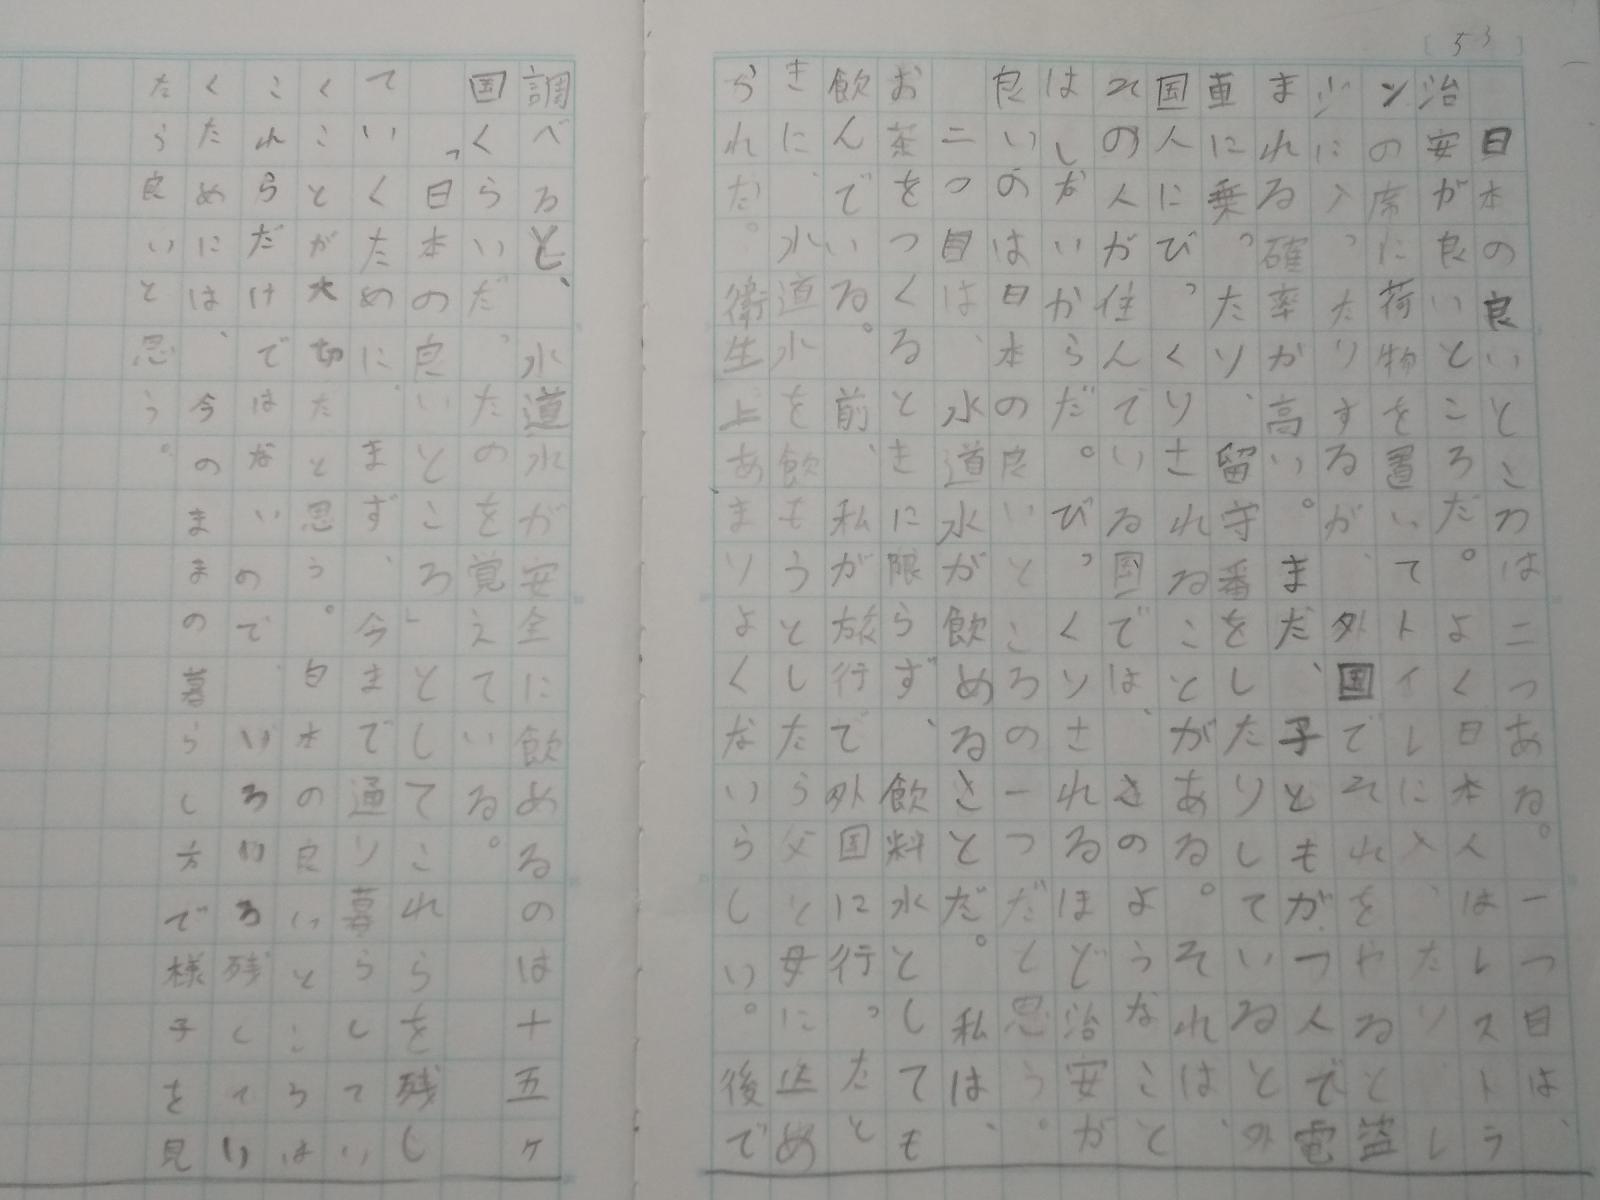 日本の良いところは二つある。一つ目は、
治安が良いところだ。よく日本人はレストラ
ンの席に荷物を置いてトイレに入ったり、レ
ジに入ったりするが、外国でそれをやると盗
まれる確率が高い。まだ、子ともが一人で電
車に乗ったり、留守番をしたりしていると、外
国人にびっくりされることがある。それは、と
れの人が住んでいる国では、そのようなこと
はしないからだ。びっくりされるほど治安が
良いのは日本の良いところの一つだと思う。
二つ目は、水道水が飲めることだ。私は、
お茶をつくるときに限らず、飲料水としても
飲んでいる。前、私が旅行で外国に行ったと
きに、水道水を飲もうとしたら父と母に止め
られた。衛生上あまりよくないらしい。後で
調べると、水道水が安全に飲めるのは十五ヶ
国くらいだったのを覚えている。
「日本の良いところ」としてこれらを残し
ていくために、まず、今まで通り暮らしてい
くことが大切だと思う。日本の良いところは
これらだけではないので、いろいろ残してい
くためには、今のままの暮らし方で様子を見
たら良いと思う。